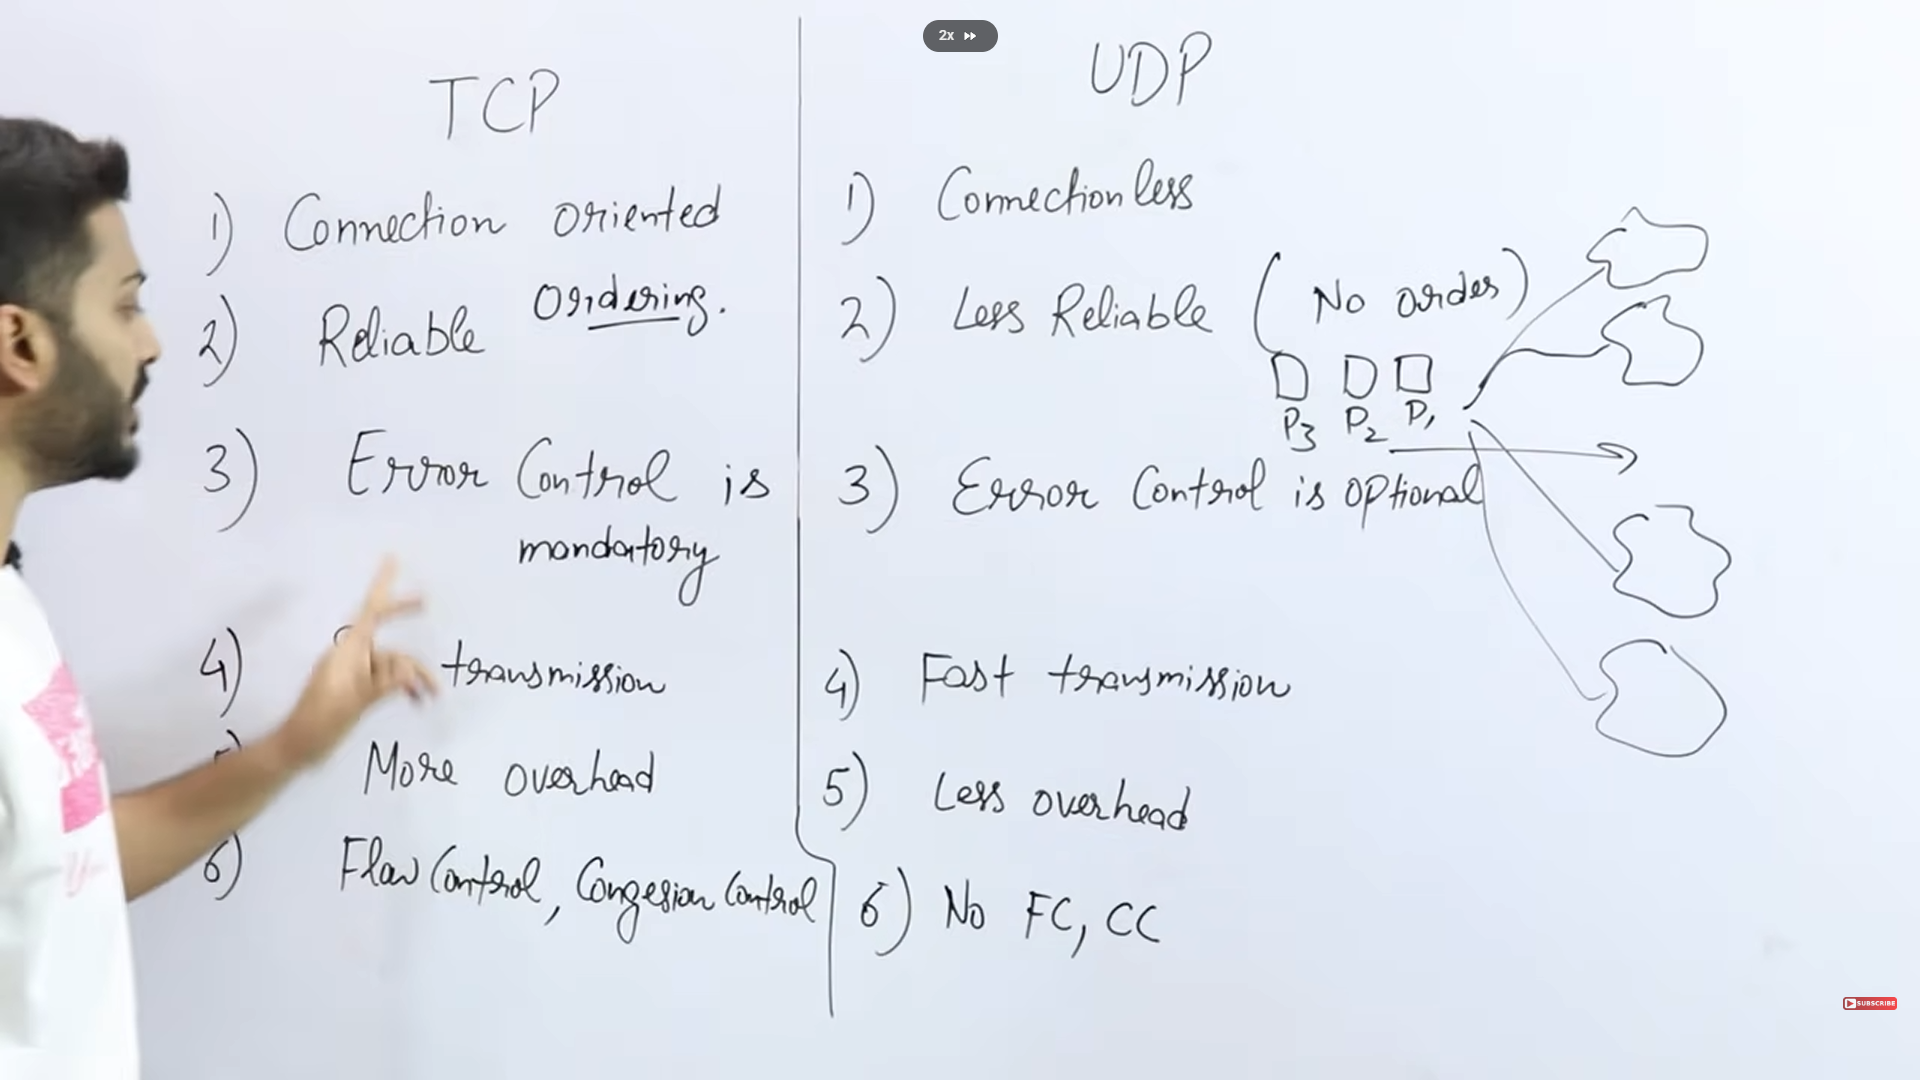 2x
TCP
1) Connection oriented
2) Reliable Ordering.
3) Error Control is
mandatory
4) transmission
More overhead
6) Flow Control, Congesion Control
UDP
1) Connectionless
2) Less Reliable ( No order )
P3 P2 P1
3) Error Control is optional
4) Fast transmission
5) Less overhead
6) No FC, CC
SUBSCRIBE